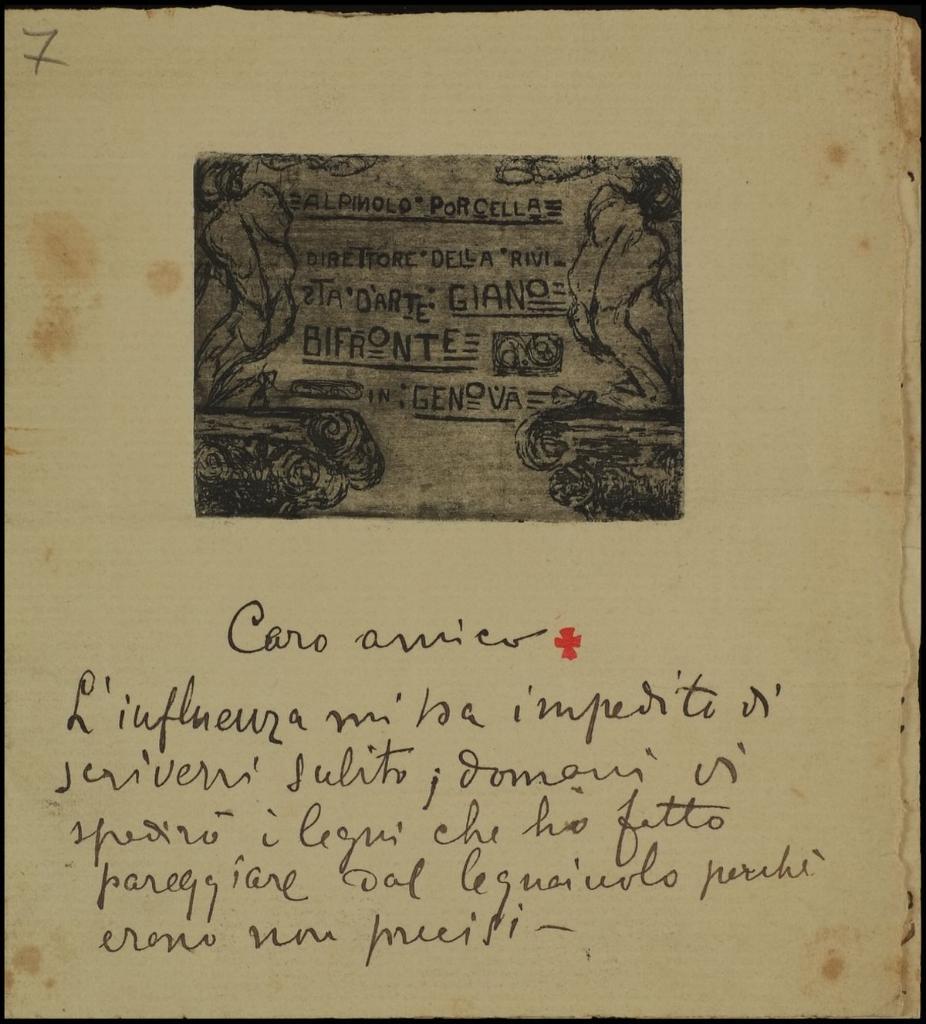 7
ALPINOLO PORCELLA
DIRETTORE DELLA RIVI-
STA D'ARTE: GIANO
BIFRONTE
IN: GENOVA
Caro amico
L'influenza mi ha impedito di
scrivervi subito; domani vi
spedirò i legni che ho fatto
pareggiare dal legnaiuolo perchè
erano non precisi -